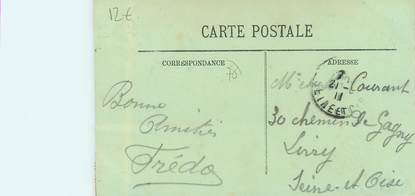 12€
CARTE POSTALE
CORRESPONDANCE
ADRESSE
70
Bonne
Amitiés
Frédo
Courant
30 chemin de Gagny
Livry
Seine et Oise